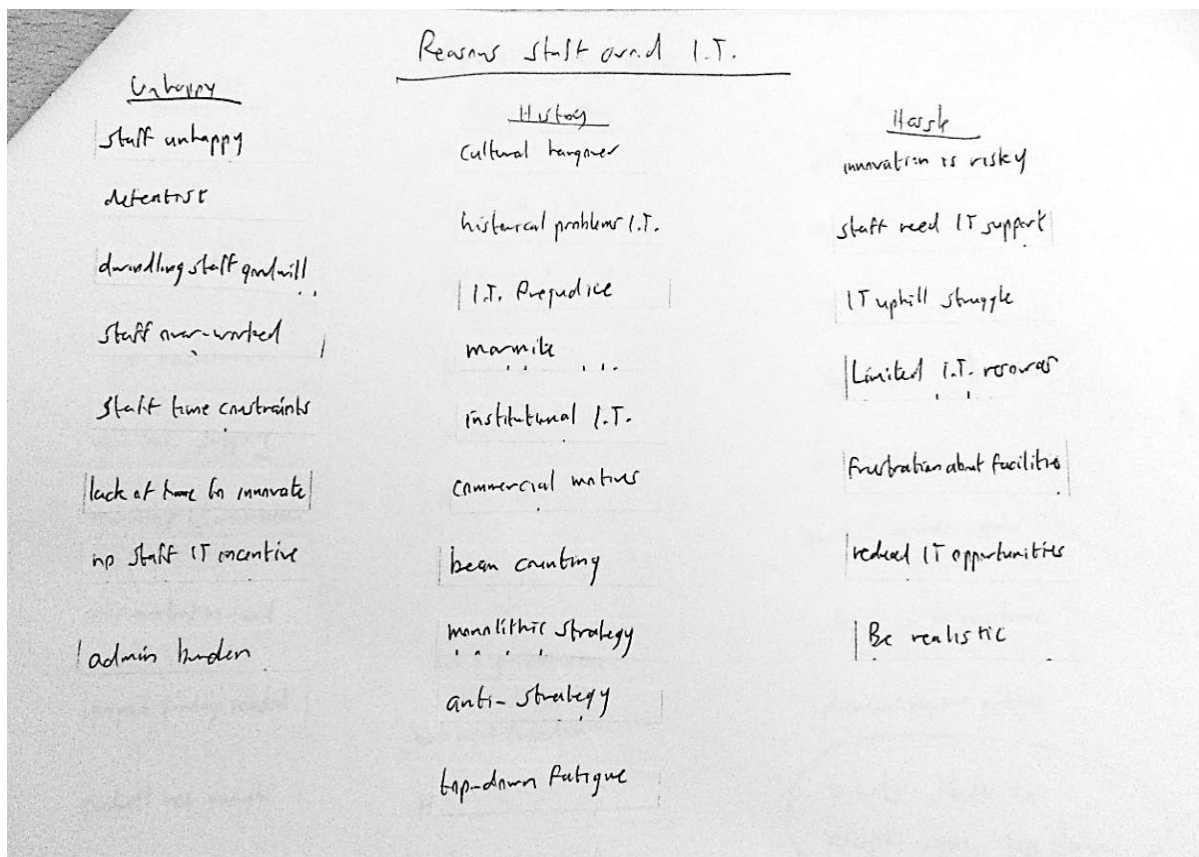 Reasons staff avoid I.T.
Unhappy
staff unhappy
defeatist
dwindling staff goodwill
staff over-worked
staff time constraints
lack of time to innovate
no staff IT incentive
admin burden
History
cultural hangover
historical problems I.T.
I.T. Prejudice
marmite
institutional I.T.
commercial motives
bean counting
monolithic strategy
anti-strategy
top-down fatigue
Hassle
innovation is risky
staff need IT support
IT uphill struggle
Limited I.T. resources
frustration about facilities
reduced IT opportunities
Be realistic